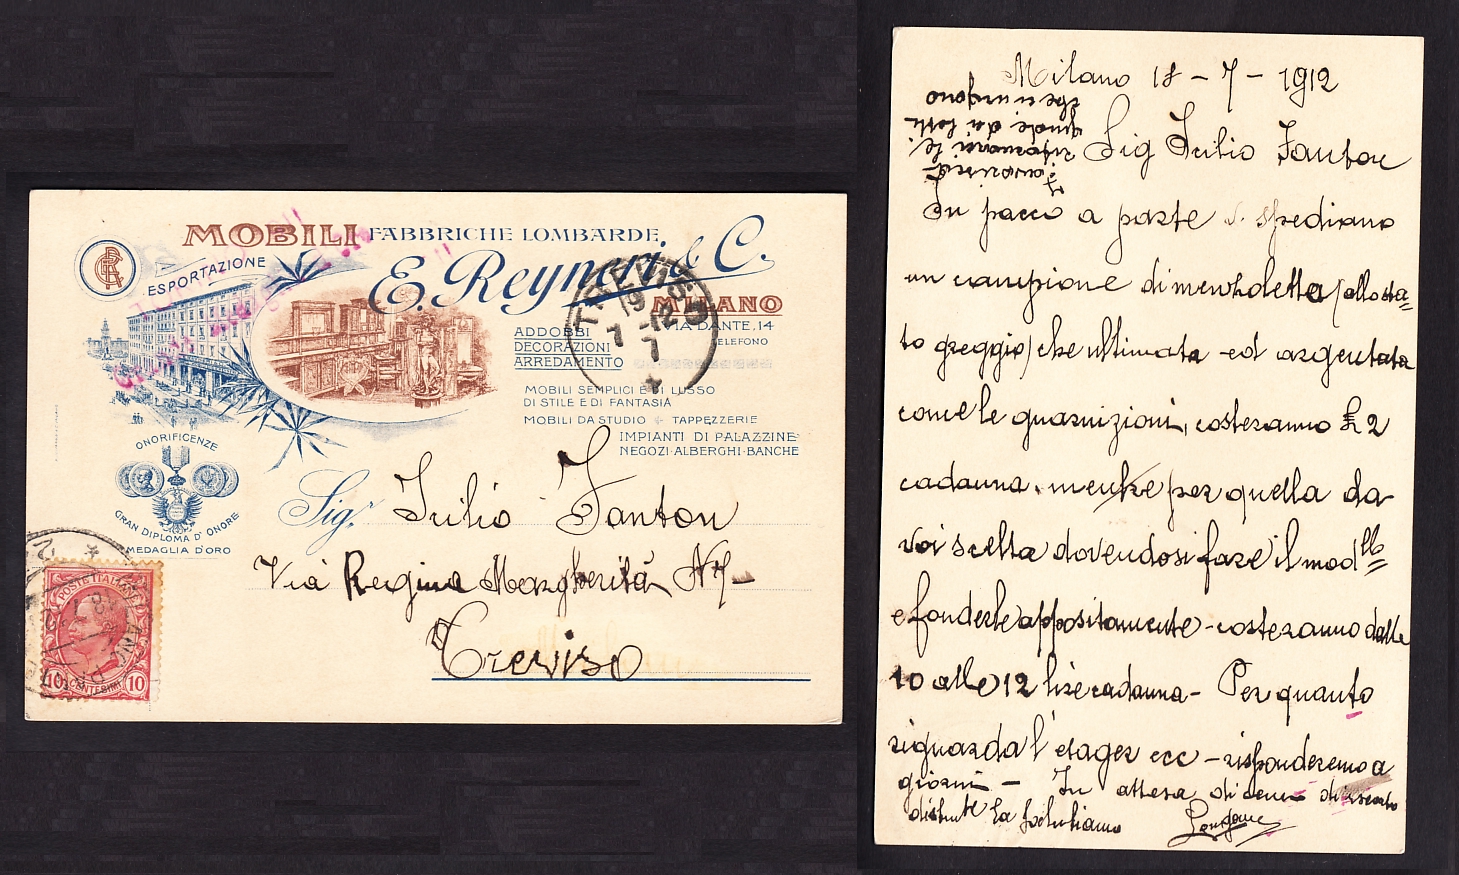 MOBILI FABBRICHE LOMBARDE
E. Reyneri & C.
ESPORTAZIONE
MILANO
VIA DANTE, 14
TELEFONO
ADDOBBI
DECORAZIONI
ARREDAMENTO
MOBILI SEMPLICI E DI LUSSO
DI STILE E DI FANTASIA
MOBILI DA STUDIO TAPPEZZERIE
IMPIANTI DI PALAZZINE
NEGOZI-ALBERGHI-BANCHE
ONORIFICENZE
GRAN DIPLOMA D'ONORE
MEDAGLIA D'ORO
TREVISO
19
7 -12
7
Sig. Tulio Fanton
Via Regina Margherita N 7-
Treviso
POSTE ITALIANE
10 CENTESIMI 10
Milano 18 - 7 - 1912
Sig Tulio Fanton
In pacco a parte si spediamo
un campione di menzoletta (allo sta=
to greggio) che ultimata ed argentata
come le guarnizioni, costeranno £ 2
cadauna, mentre per quella da
voi scelta dovendosi fare il modllo
e fonderle appositamente - costeranno dalle
10 alle 12 lire cadauna - Per quanto
riguarda l'etager ecc - risponderemo a
giorni - In attesa di
distinte La salutiamo
Favorisca
ritornarci le
quote, dei lotti
che ci ungono